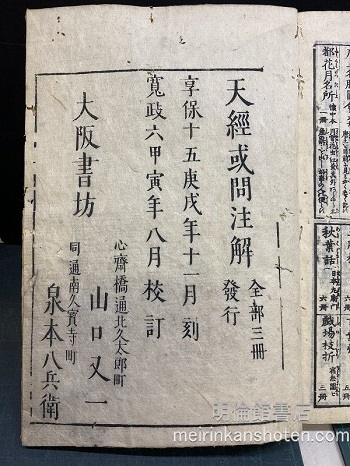 天經或問注解
全部三冊
發行
享保十五庚戌年十一月刻
寬政六甲寅年八月校訂
心齊橋通北久太郎町
山口又一
大阪書坊
同通南久寶寺町
泉本八兵衛
都花月名所
秋葉話
戲場枝折
六冊
三冊
明倫館書店
www.meirinkanshoten.com